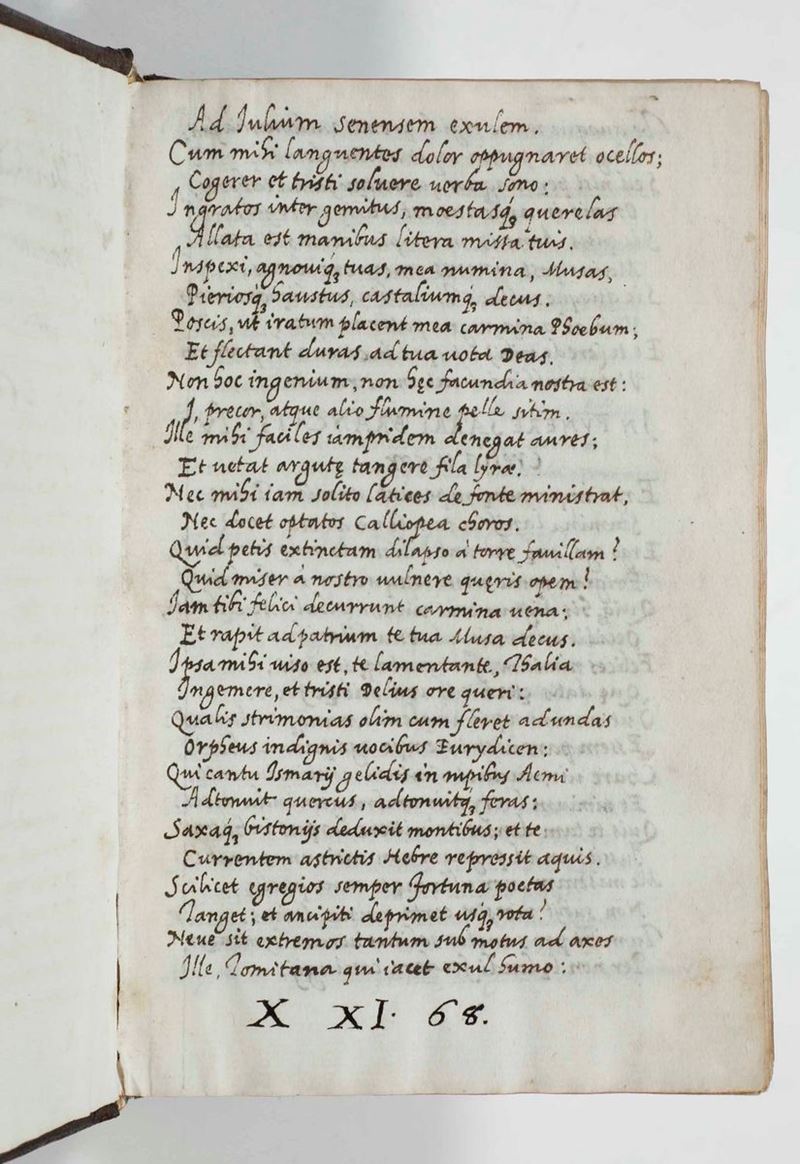 Ad Iulium Senensem exulem.
Cum mihi languentes dolor oppugnaret ocellos;
Cogerer et tristi soluere uerba sono;
Ingratos inter gemitus, moestasq́ꝫ querelas
Allata est manibus litera missa tuis.
Inspexi, agnouiq́ꝫ tuas, mea numina, Musas,
Pieriosq́ꝫ haustus, castaliumq́ꝫ decus.
Poscis, ut iratum placent mea carmina Phoebum;
Et flectant duras ad tua uota Deas.
Non hoc ingenium, non hęc facundia nostra est:
I, precor, atque alio flumine pelle sitim.
Ille mihi faciles iampridem denegat aures;
Et uetat argutę tangere fila lyræ.
Nec mihi iam solito latices de fonte ministrat,
Nec docet optatos Calliopea choros.
Quid petis extinctam dilapso à torre fauillam?
Quid miser à nostro uulnere quęris opem?
Iam tibi felici decurrunt carmina uena;
Et rapit ad patrium te tua Musa decus.
Ipsa mihi uiso est, te lamentante, Thalia
Ingemere, et tristi Delius ore queri:
Qualis strimonias olim cum fleret ad undas
Orpheus indignis uocibus Eurydicen:
Qui cantu Ismarij gelidis in rupibus Aemi
Adtonuit quercus, adtonuitq́ꝫ feras;
Saxaq́ꝫ bistonijs deduxit montibus; et te
Currentem astrictis Hebre repressit aquis.
Scilicet ęgregios semper fortuna poetas
Tanget; et ancipiti deprimet usq́ꝫ rota?
Neue sit extremos tantum sub motus ad axes
Ille, Tomitana qui iacet exul humo:
X XI. 68.